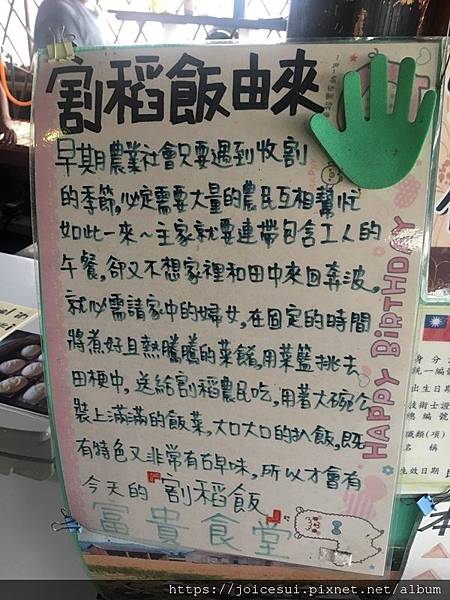 割稻飯由來
早期農業社會只要遇到收割
的季節,必定需要大量的農民互相幫忙
如此一來~主家就要連帶包含工人的
午餐,卻又不想家裡和田中來回奔波,
就必需請家中的婦女,在固定的時間
將煮好且熱騰騰的菜餚,用菜籃挑去
田梗中,送給割稻農民吃,用著大碗公
裝上滿滿的飯菜,大口大口的扒飯,既
有特色又非常有古早味,所以才會有
今天的『割稻飯』
富貴食堂
HAPPY BIRTHDAY
身分
統一編
出生日期
技術士證
總編號
職類(項)
名稱
生效日期
https://joicesui.pixnet.net/album